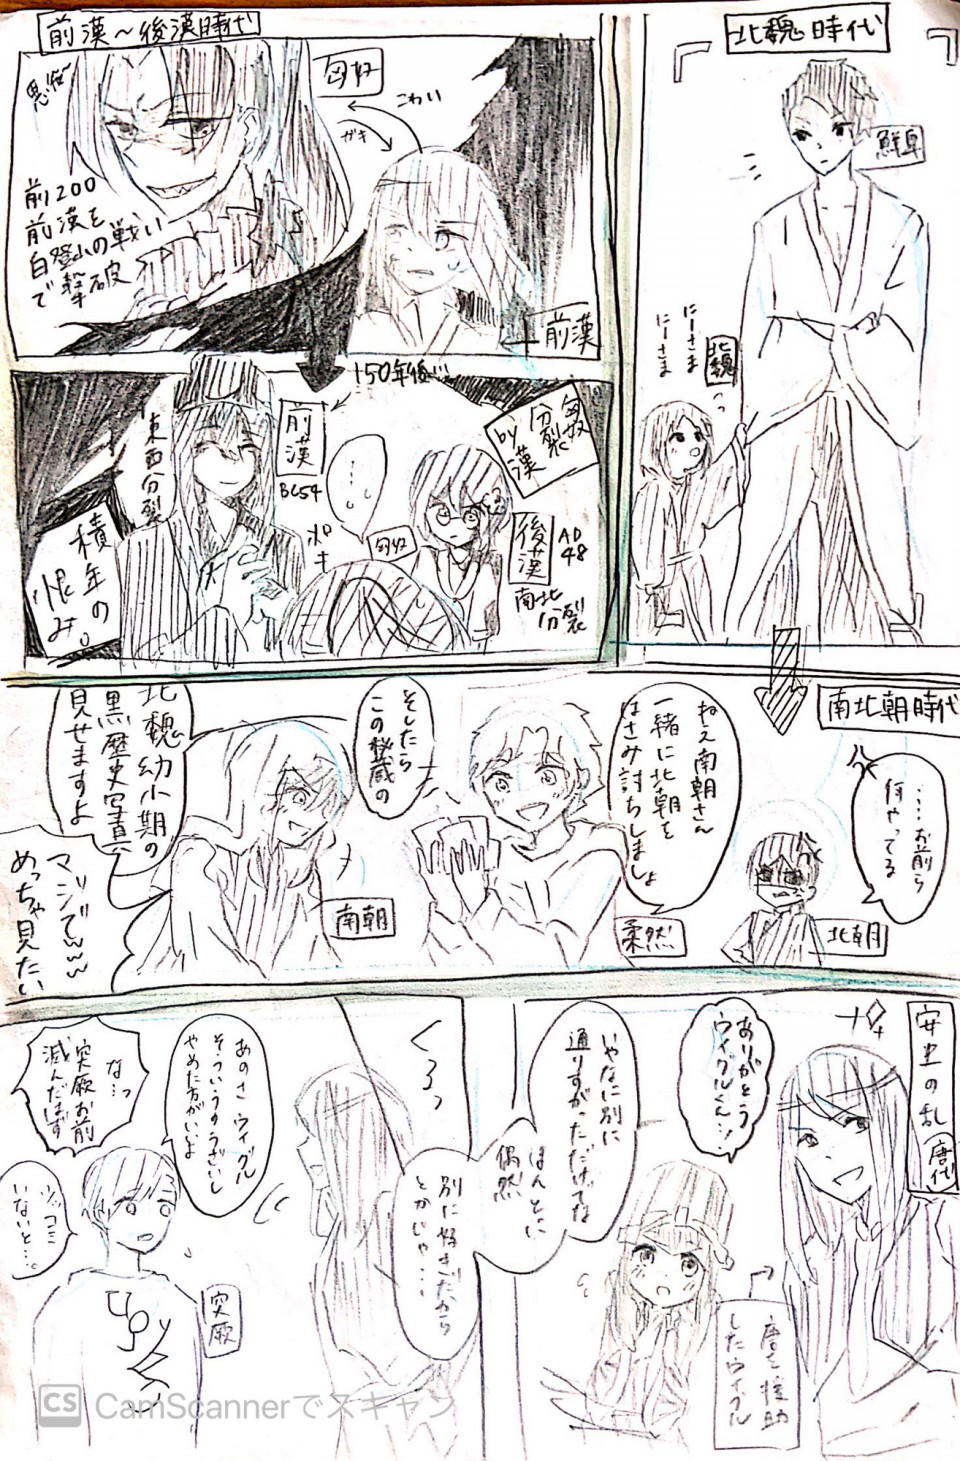 前漢〜後漢時代
匈奴
こわい
ガキ
前200
前漢を
白登山の戦い
で撃破
前漢
150年後…
前漢
BC54
東西分裂
積年の
恨み。
ポキ
匈奴
匈奴
分裂
by 漢
後漢
AD
48
南北
分裂
北魏時代
鮮卑
にーさま
にーさま
北魏
南北朝時代
……お前ら
何やってる
北朝
ねえ南朝さん
一緒に北朝を
はさみ討ちしましょ
柔然
そしたら
この秘蔵の
北魏幼小期の
黒歴史写真
見せますよ
南朝
マジでwww
めっちゃ見たい
安史の乱
唐代
ありがとう
ウイグルくん!
唐を援助
したウイグル
いやなに別に
通りすがっただけってな
ほんとに
偶然
別に好きだから
とかじゃ…
くるっ
あのさウイグル
そういうのうざいし
やめた方がいいよ
突厥
なっ…
突厥お前
滅んだはず
ツッコミ
ないと…
CS CamScannerでスキャン